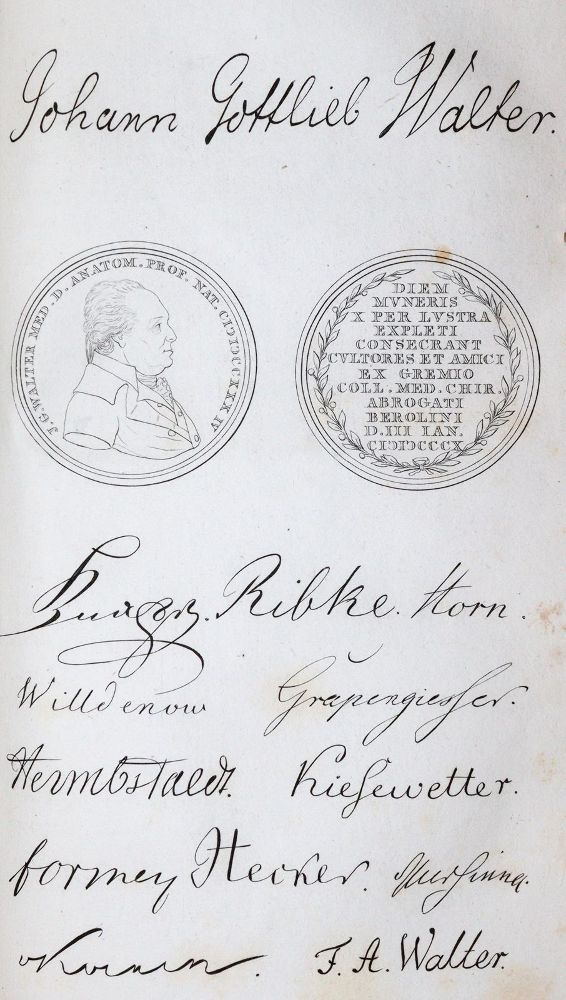 Johann Gottlieb Walter.
J. G. WALTER MED. D. ANATOM. PROF. NAT. CIƆIƆCCXXXIV
DIEM
MVNERIS
X PER LVSTRA
EXPLETI
CONSECRANT
CVLTORES ET AMICI
EX GREMIO
COLL. MED. CHIR.
ABROGATI
BEROLINI
D. III IAN.
CIƆIƆCCCX.
Ribke. Horn.
Willdenow Grapengiesser.
Hermbstaedt. Kiesewetter.
Formey Hecker. Mursinna.
F. A. Walter.